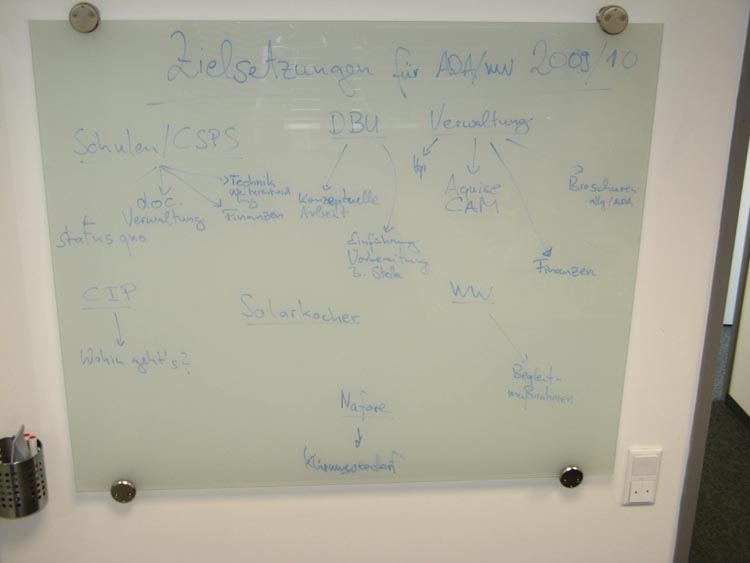 Zielsetzungen für ADA/WW 2009/10
Schulen/CSPS
status quo
doc.
Verwaltung
Technik
Finanzen
DBU
Konzeptuelle
Arbeit
Einführung
Vorbereitung
3. Stelle
Verwaltung
Hp
Aquise
CAM
Finanzen
Broschüren
allg/ADA
CIP
Wohin geht's?
Solarkocher
WW
Begleit-
maßnahmen
Nafore
Klärungsbedarf